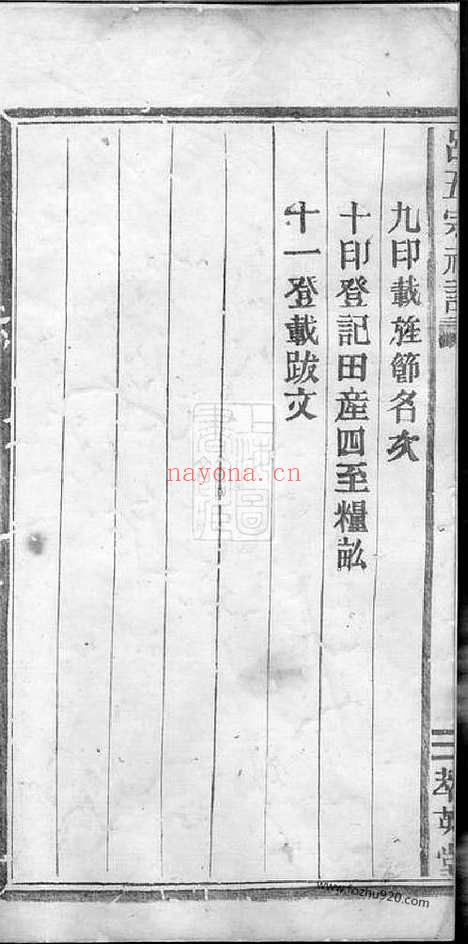 九印載旌節名次
十印登記田産四至糧畝
十一登載跋文
二
nayona.cn
www.fozhu920.com